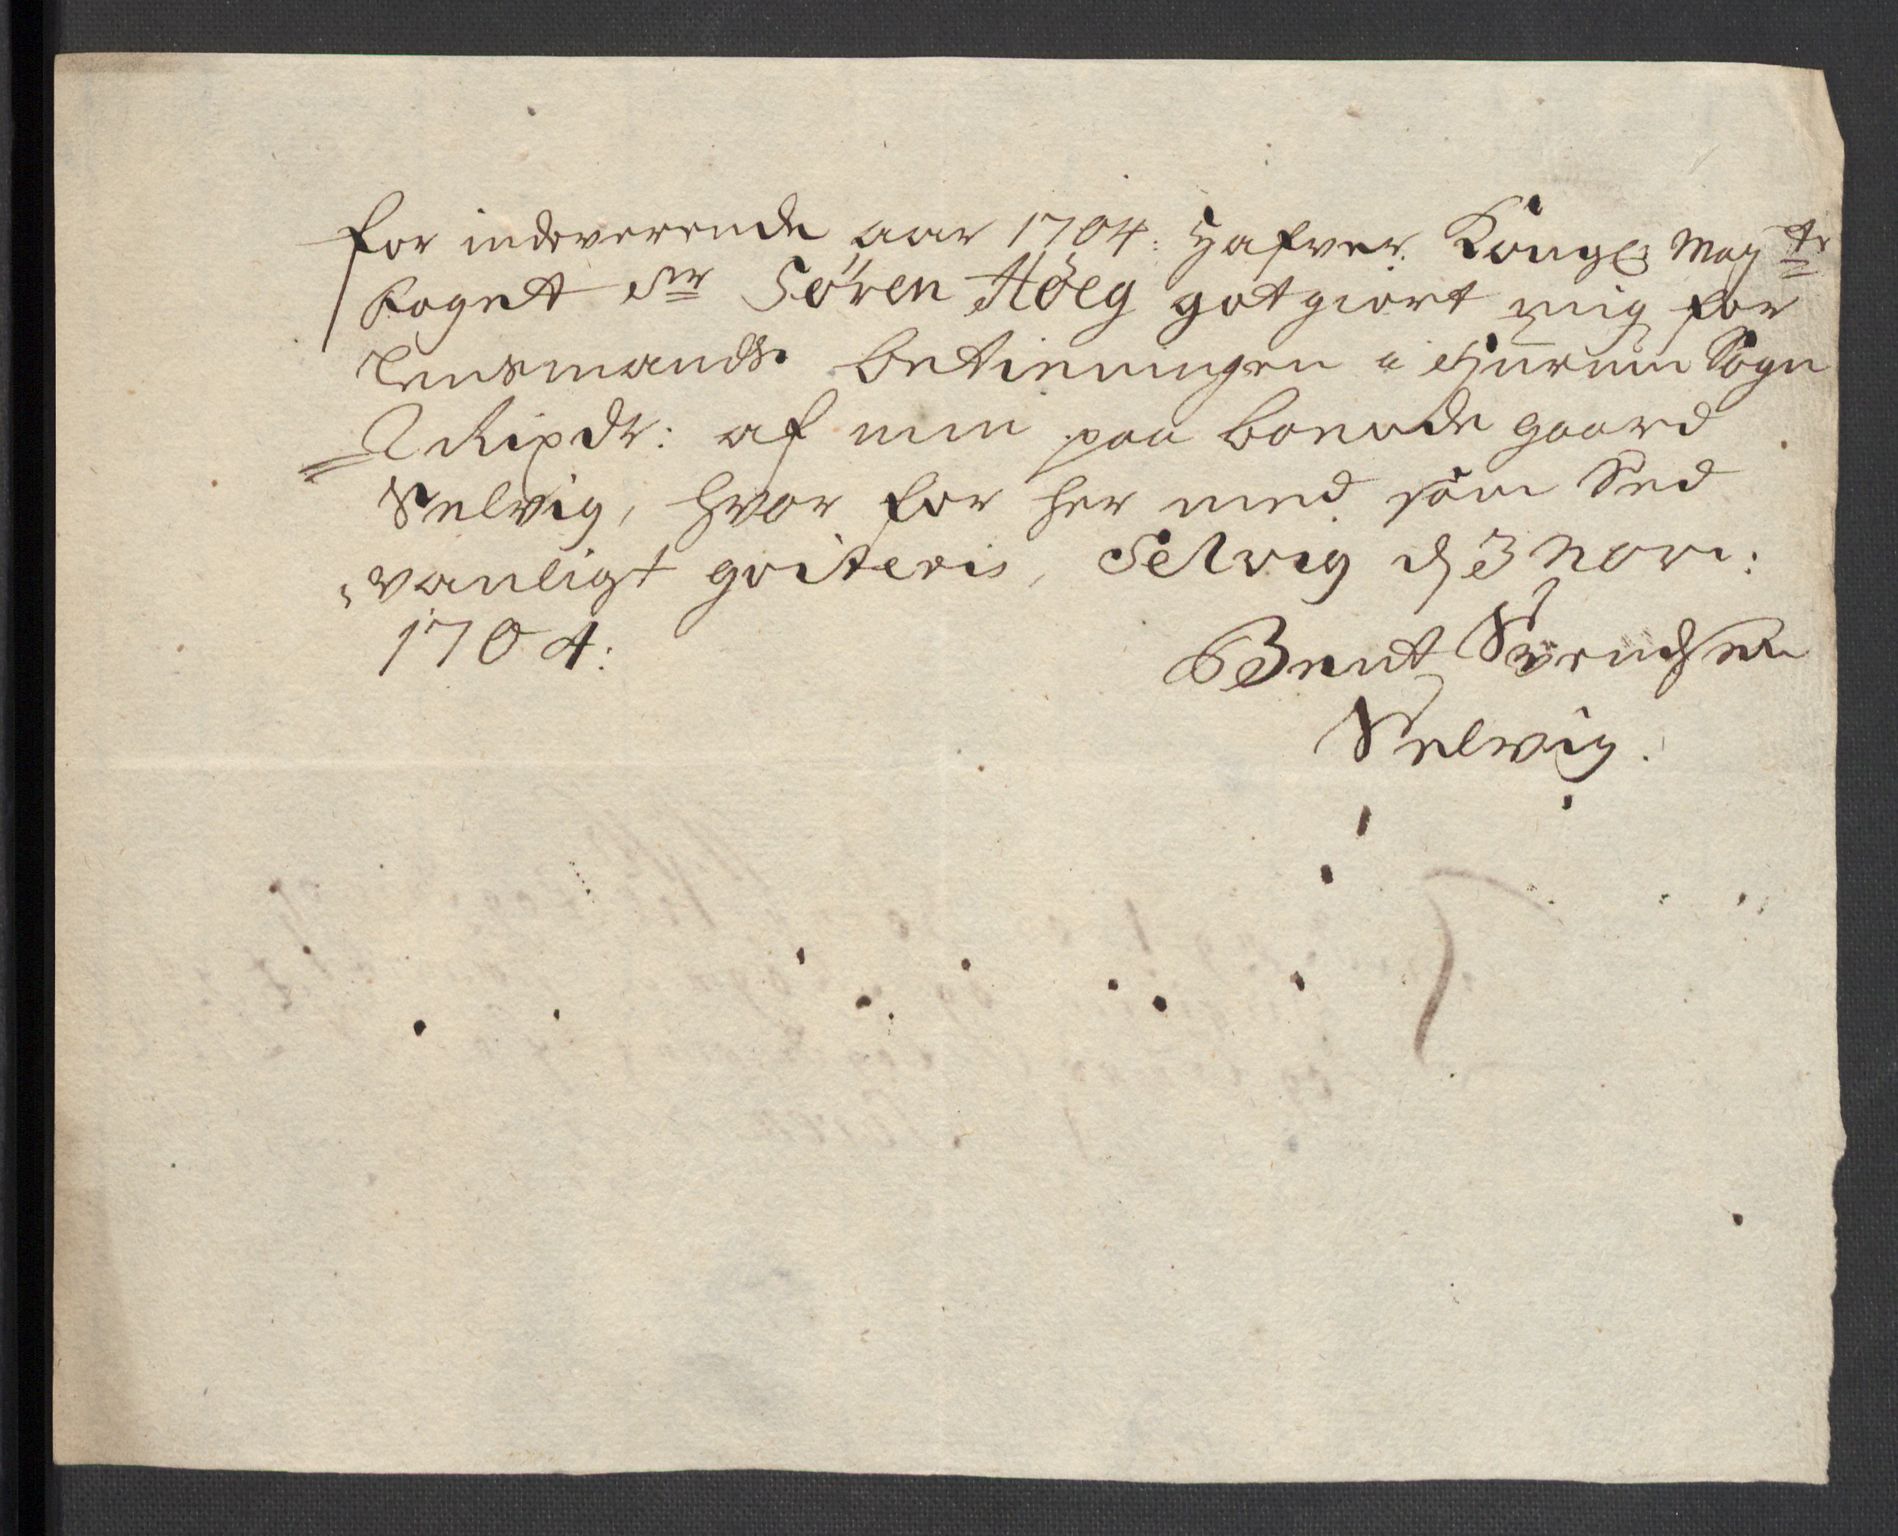 for indeverende aar 1704: Hafver Kongl: May.ts
Foget Sr Søren Høeg godtgiort mig for
Lensmands betieningen i Hurum Sogn
2 Rixdr: af min paa boende gaard
Selvig, hvor for her med som Sed
vanligt qviteris, Selvig d 3 Nov:
1704:
Bent Svendsen
Selvig.